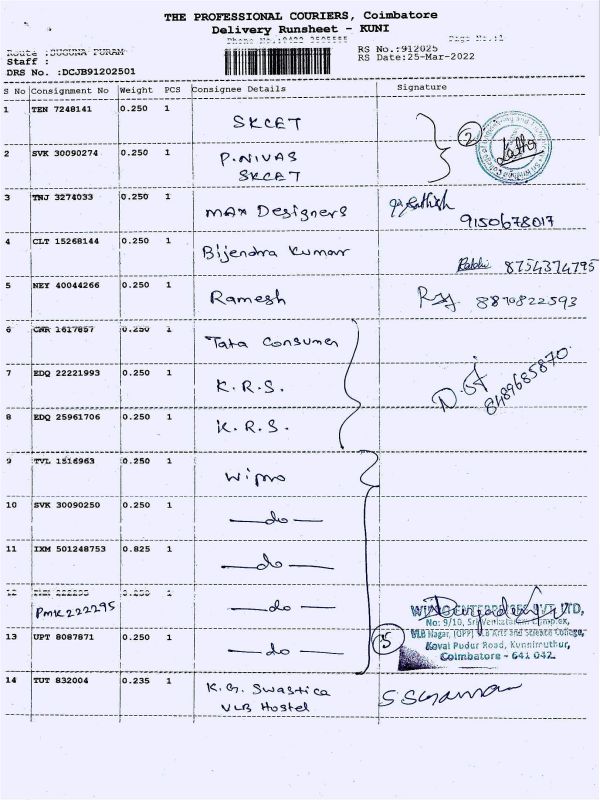 THE PROFESSIONAL COURIERS, Coimbatore
Delivery Runsheet - KUNI
Page No.:1
Route :SUGUNA PURAM
RS No.:912025
Staff :
RS Date:25-Mar-2022
DRS No. :DCJB91202501
S No Consignment No Weight PCS Consignee Details Signature
1 TEN 7248141 0.250 1 SKCET
2 SVK 30090274 0.250 1 P.NIVAS
SKCET
2
3 TNJ 3274033 0.250 1 MAX Designers
9150678017
4 CLT 15268144 0.250 1 Bijendra Kumar
8754374795
5 NEY 40044266 0.250 1 Ramesh
8870822593
6 1617857 0.250 1 Tata Consumer
7 EDQ 22221993 0.250 1 K.R.S.
8489685870
8 EDQ 25961706 0.250 1 K.R.S.
9 TVL 1516963 0.250 1 Wipro
10 SVK 30090250 0.250 1 —do—
11 IXM 501248753 0.825 1 —do—
12 0.250 1 —do—
PMK222295
No: 9/10, Sri Venkatachalam Complex,
13 UPT 8087871 0.250 1 —do— 5
VLB Nagar, (OPP) VLB Arts and Science College,
Kovai Pudur Road, Kuniamuthur,
Coimbatore - 641 042.
14 TUT 832004 0.235 1 K.G. Swastica
VLB Hostel